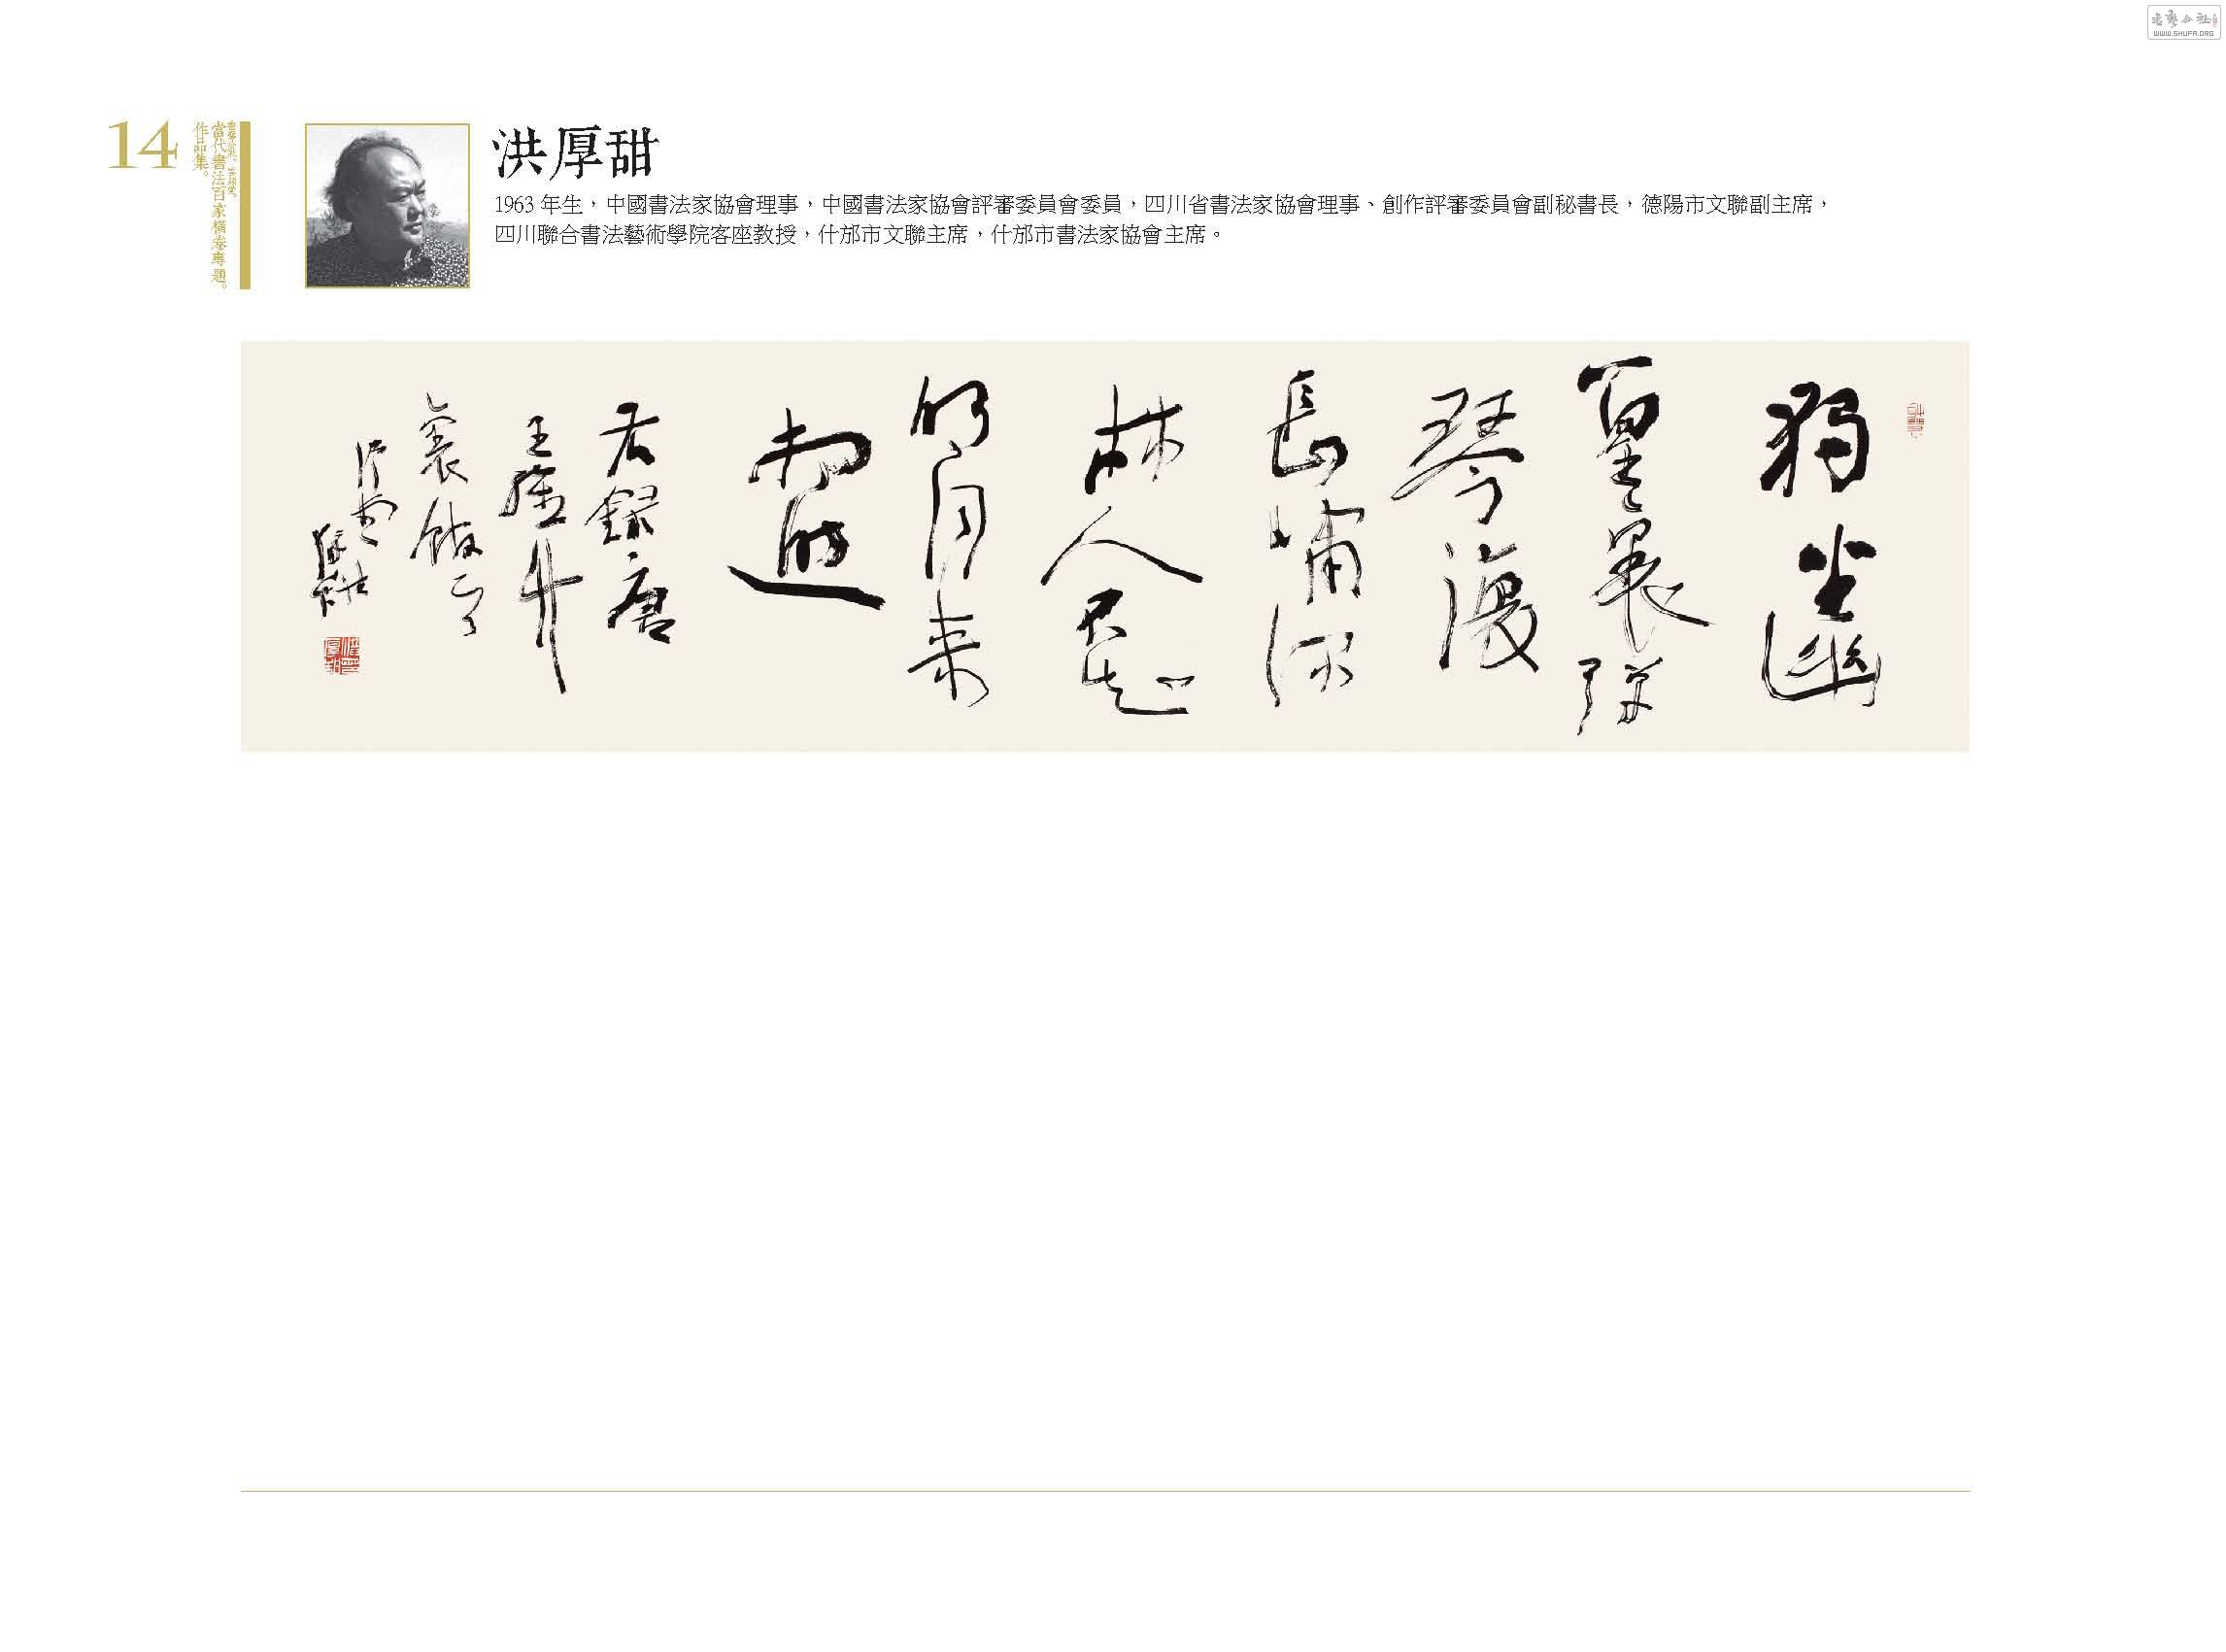 書藝公社
WWW.SHUFA.ORG
14
當代書法百家橫卷專題。
作品集。
洪厚甜
1963 年生，中國書法家協會理事，中國書法家協會評審委員會委員，四川省書法家協會理事、創作評審委員會副秘書長，德陽市文聯副主席，
四川聯合書法藝術學院客座教授，什邡市文聯主席，什邡市書法家協會主席。
獨坐幽
篁裏彈
琴復
長嘯深
林人不知
明月來
相照
右録唐
王維竹
裏館
净堂
厚甜